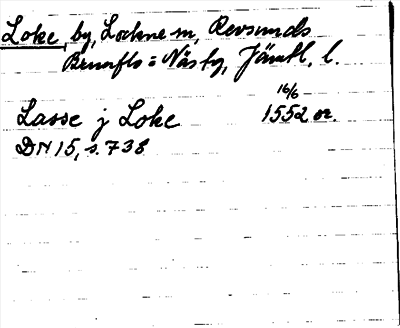 Loke, by, Lockne sn, Revsunds
Brunflo = Näs tg, Jämtl. l.
16/6
Lasse j Loke 1552 or.
DN 15, s. 738